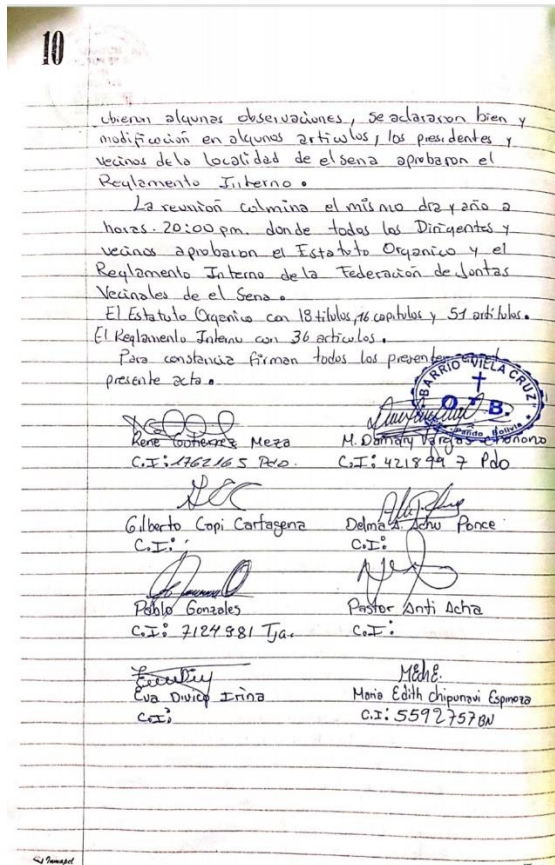 10
ubieron algunas observaciones, se aclararon bien y
modificación en algunos articulos, los presidentes y
vecinos de la localidad de el sena aprobaron el
Reglamento Interno.
La reunión culmina el mismo dia y año a
horas. 20:00 pm. donde todos los Dirigentes y
vecinos aprobaron el Estatuto Organico y el
Reglamento Interno de la Federación de Juntas
Vecinales de el Sena.
El Estatuto Organico con 18 titulos, 16 capitulos y 51 artitulos.
El Reglamento Interno con 36 articulos.
Para constancia firman todos los presentes
presente acta.
BARRIO VILLA CRUZ
O.T.B.
Pando Bolivia
Rene Gutierrez Meza
M. Domigry Vargas
C.I: 1762165 Pdo.
C.I: 4218997 Pdo
Gilberto Copi Cartagena
Delma A. Achu Ponce
C.I:
C.I:
Pablo Gonzales
Pastor Anti Acha
C.I: 7124981 Tja.
C.I:
MEdhE.
Eva Divico Irina
Maria Edith Chipunavi Espinoza
C.I:
C.I: 5592757 BN